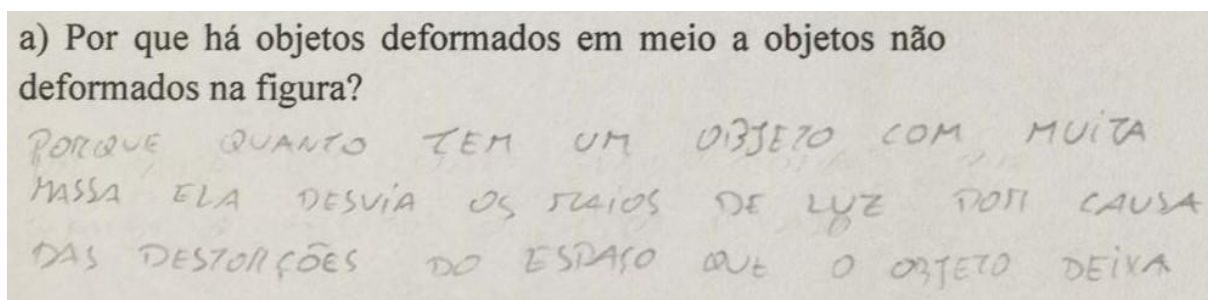 a) Por que há objetos deformados em meio a objetos não
deformados na figura?
PORQUE QUANTO TEM UM OBJETO COM MUITA
MASSA ELA DESVIA OS RAIOS DE LUZ POR CAUSA
DAS DESTORÇÕES DO ESPAÇO QUE O OBJETO DEIXA